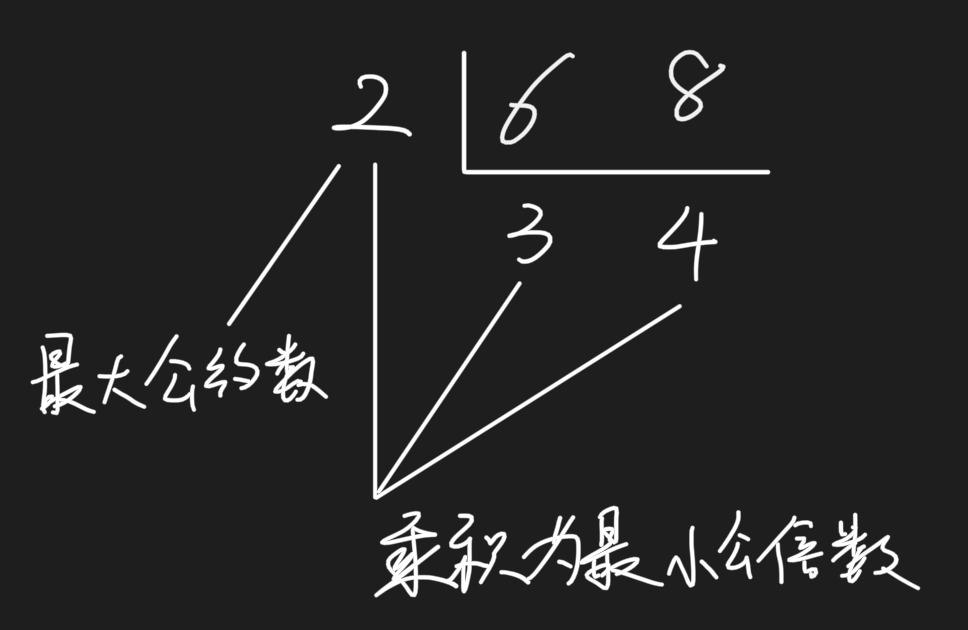 2 6 8
3 4
最大公约数
乘积为最小公倍数